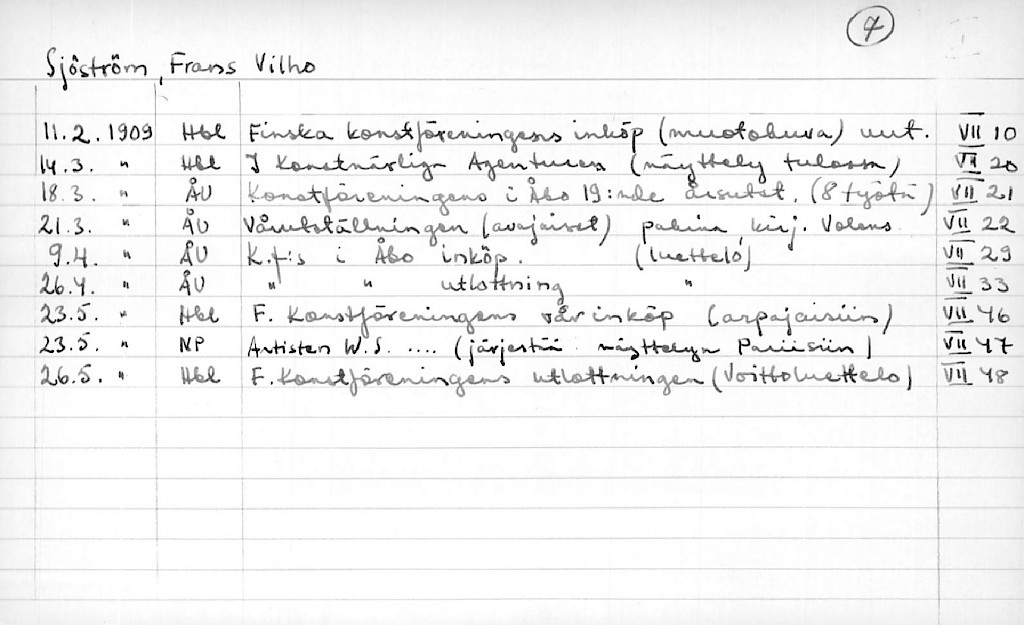 7
Sjöström, Frans Vilho
11.2. 1909 Hbl Finska konstföreningens inköp (muotokuva) uut. VII 10
14.3. " Hbl I Konstnärliga Agenturen (näyttely tulossa) VII 20
18.3. " ÅU Konstföreningens i Åbo 19:nde årsutst. (8 työtä) VII 21
21.3. " ÅU Vårutställningen (avajaiset) pakina, kirj. Volens VII 22
9.4. " ÅU K.f:s i Åbo inköp. (luettelo) VII 29
26.4. " ÅU " " utlottning " VII 33
23.5. " Hbl F. Konstföreningens vårinköp (arpajaisiin) VII 46
23.5. " NP Artisten W.S. .... (järjestää näyttelyn Pariisiin) VII 47
26.5. " Hbl F. Konstföreningens utlottningen (Voittoluettelo) VII 48